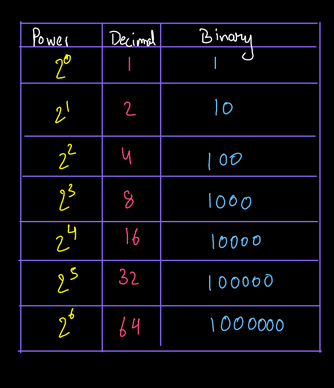 Power Decimal Binary
2⁰ 1 1
2¹ 2 10
2² 4 100
2³ 8 1000
2⁴ 16 10000
2⁵ 32 100000
2⁶ 64 1000000